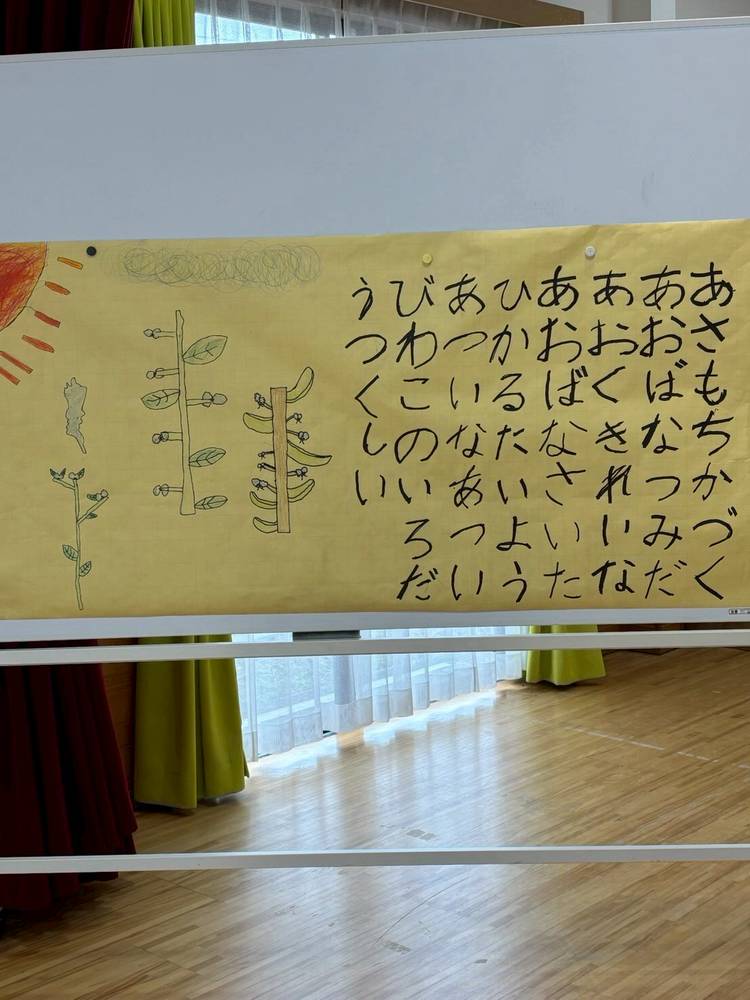 あさもちかづく
あおばなつみだ
あおくきれいな
あおばなさいた
ひかるたいよう
あついなあつい
びわこのいろだ
うつくしい